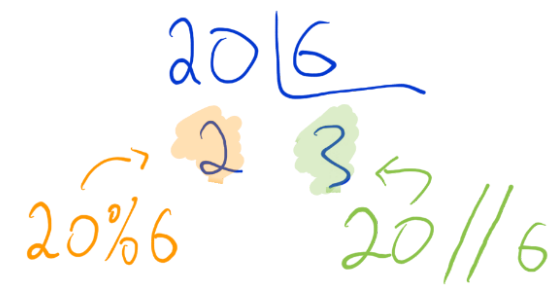 20 6
2 3
20%6 20//6